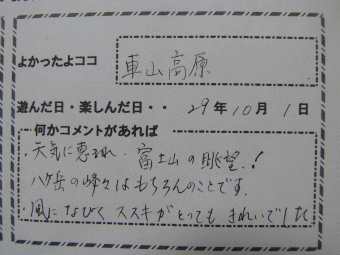 よかったよココ 車山高原
遊んだ日・楽しんだ日・・ 29年10月1日
何かコメントがあれば
・天気に恵まれ・富士山の眺望!
八ヶ岳の峰々はもちろんのことです。
・風になびくススキがとってもきれいでした